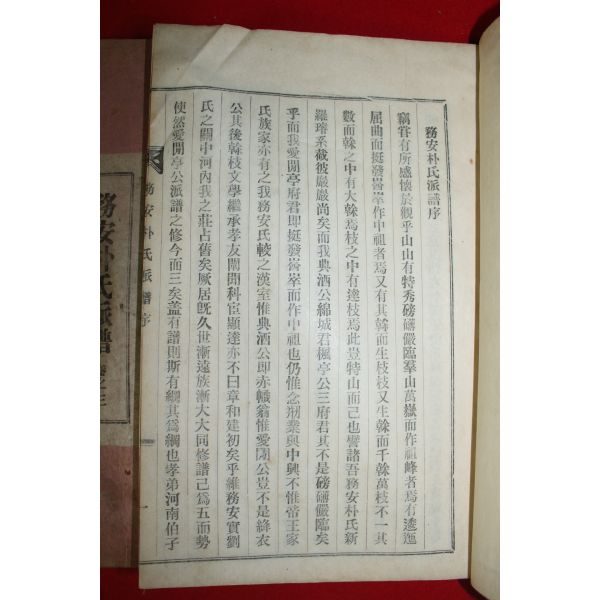 務安朴氏派譜序
竊甞有所感懷於觀乎山山有特秀磅礴儼臨羣山萬嶽而作祖峰者焉有逶迤
屈曲而挺發嶜崒作中祖者焉又有其榦而生枝枝又生榦而千榦萬枝不一其
數而榦之中有大榦焉枝之中有逹枝焉此豈特山而已也譬諸吾務安朴氏新
羅璿系截彼嚴嚴尚矣而我典酒公綿城君楓亭公三府君其不是磅礴儼臨矣
乎而我愛閒亭府君即挺發嶜崒而作中祖也仍惟念刱業與中興不惟啻王家
氏族家亦有之我務安氏較之漢室惟典酒公即赤幟翁惟愛閒公豈不是絳衣
公其後榦枝文學繼承孝友闡聞科宦顯達亦不曰章和建初矣乎維務安實劉
氏之關中河內我之莊占舊矣厥居旣久世漸遠族漸大大同修譜已爲五而勢
使然愛閒亭公派譜之修今面三矣盖有譜則斯有綱其爲綱也孝弟河南伯子
務安朴氏派譜序
一
務安朴氏派譜 卷之三